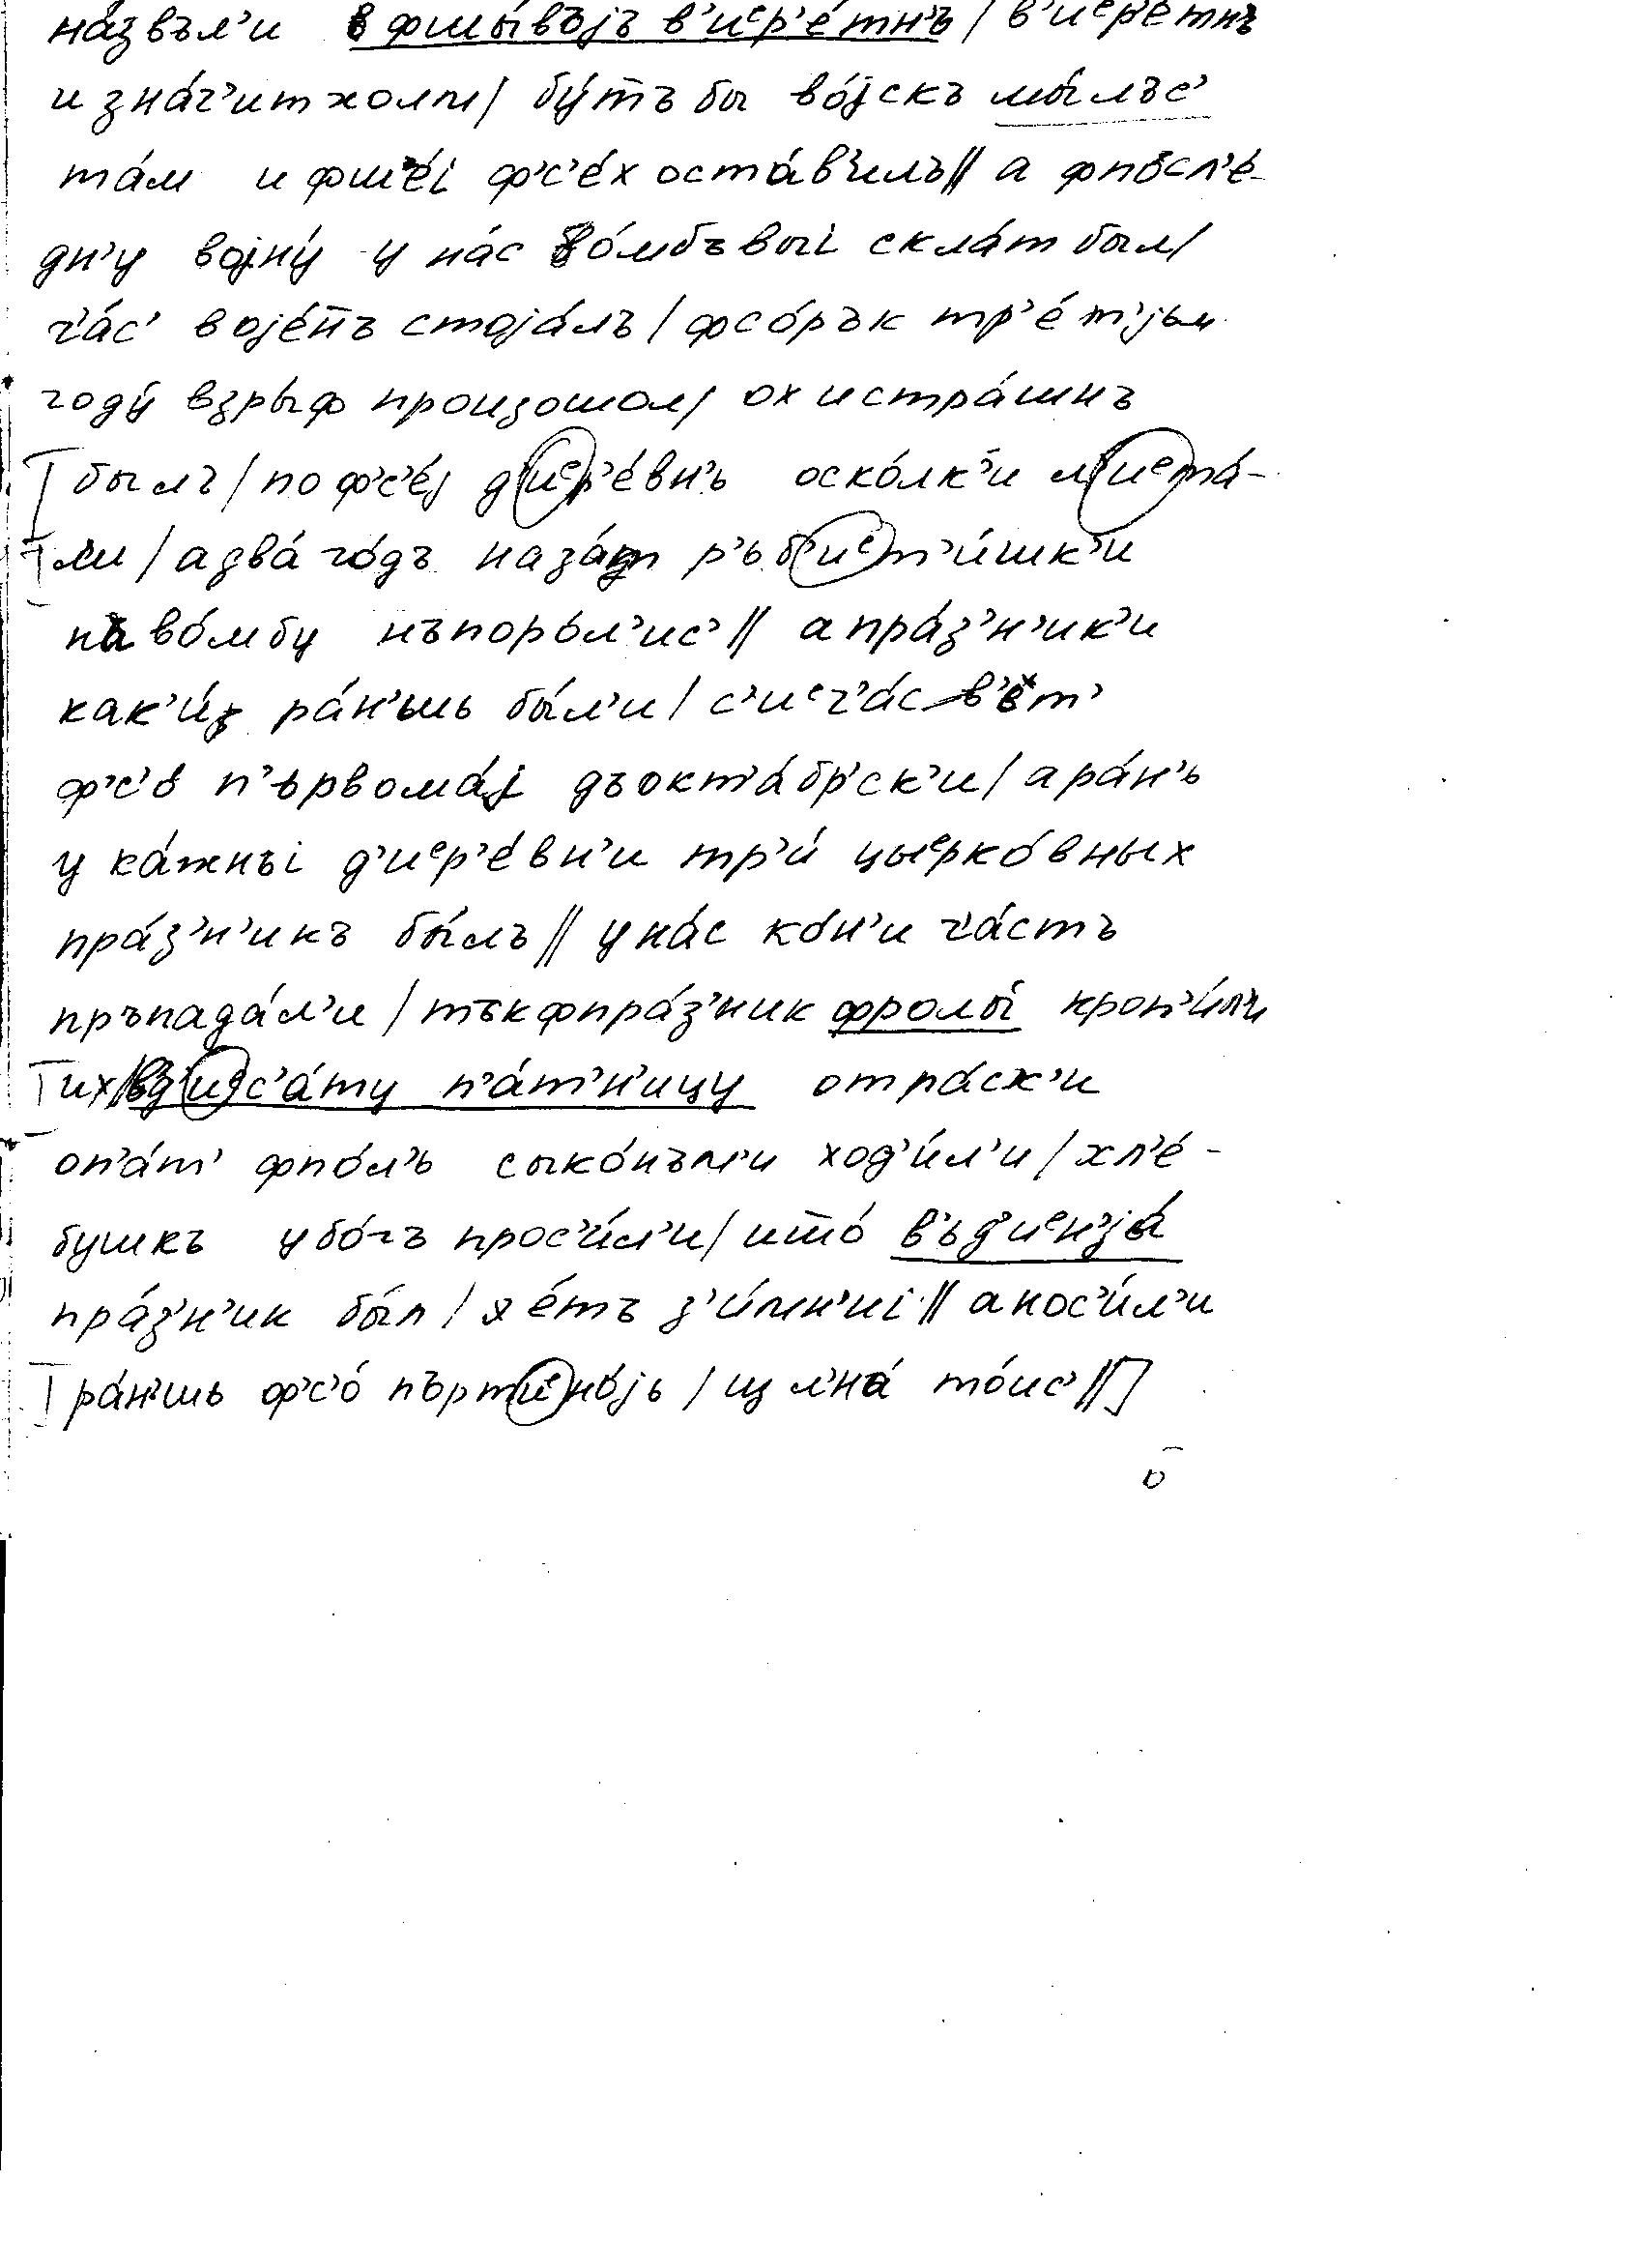 на́звъл'и в фшы́въjъ в'иᵉр'е́тнъ / в'иᵉр'е́тнъ
и зна́ч'ит холм / бу́т̄ъ бы во́jскъ мы́лъс'
та́м и фш'е́i ф'с'е́х оста́в'илъ // а фпо́сл'е-
дн'у воjну́ у на́с бо́мбъвыi скла́т был /
ча́с' воjе́п̄ъ стоjа́лъ / фсо́рък тр'е́т'jьм
году́ взры́ф произошол / ох и стра́шнъ
былъ / по ф'с'е́j д'иᵉр'е́вн'ь оско́лк'и л'иᵉта́-
ли / а два́ го́дъ наза́т р'ьб'иᵉт'и́шк'и
на бо́мбу нъпоро́л'ис' // а пра́з'н'ик'и
как'и́ ра́н'шь бы́л'и / с'иᵉч'а́с в'ет'
ф'с'о п'ьрвома́j дъ окт'а́бр'ск'и / а ра́н'ь
у ка́жнъi д'иᵉр'е́вн'и тр'и́ цыᵉрко́вных
пра́з'н'икъ бы́лъ // у на́с ко́н'и ча́стъ
пръпада́л'и / тък фпра́з'ник фролы́ кроп'и́л'и
их / вд'иᵉс'а́ту п'а́т'н'ицу отрáск'и
оп'а́т' фпо́л'ь сыко́нъм'и ход'и́л'и / хл'е́-
бушкъ у бо́гъ прос'и́л'и / ит̄о́ въд'иᵉнjа́
пра́з'н'ик бы́л / я е́тъ з'и́мн'иi // а нос'и́л'и
ра́н'шь ф'с'о́ пърт'иᵉно́jь / щ л'на́ то́ис' // ]